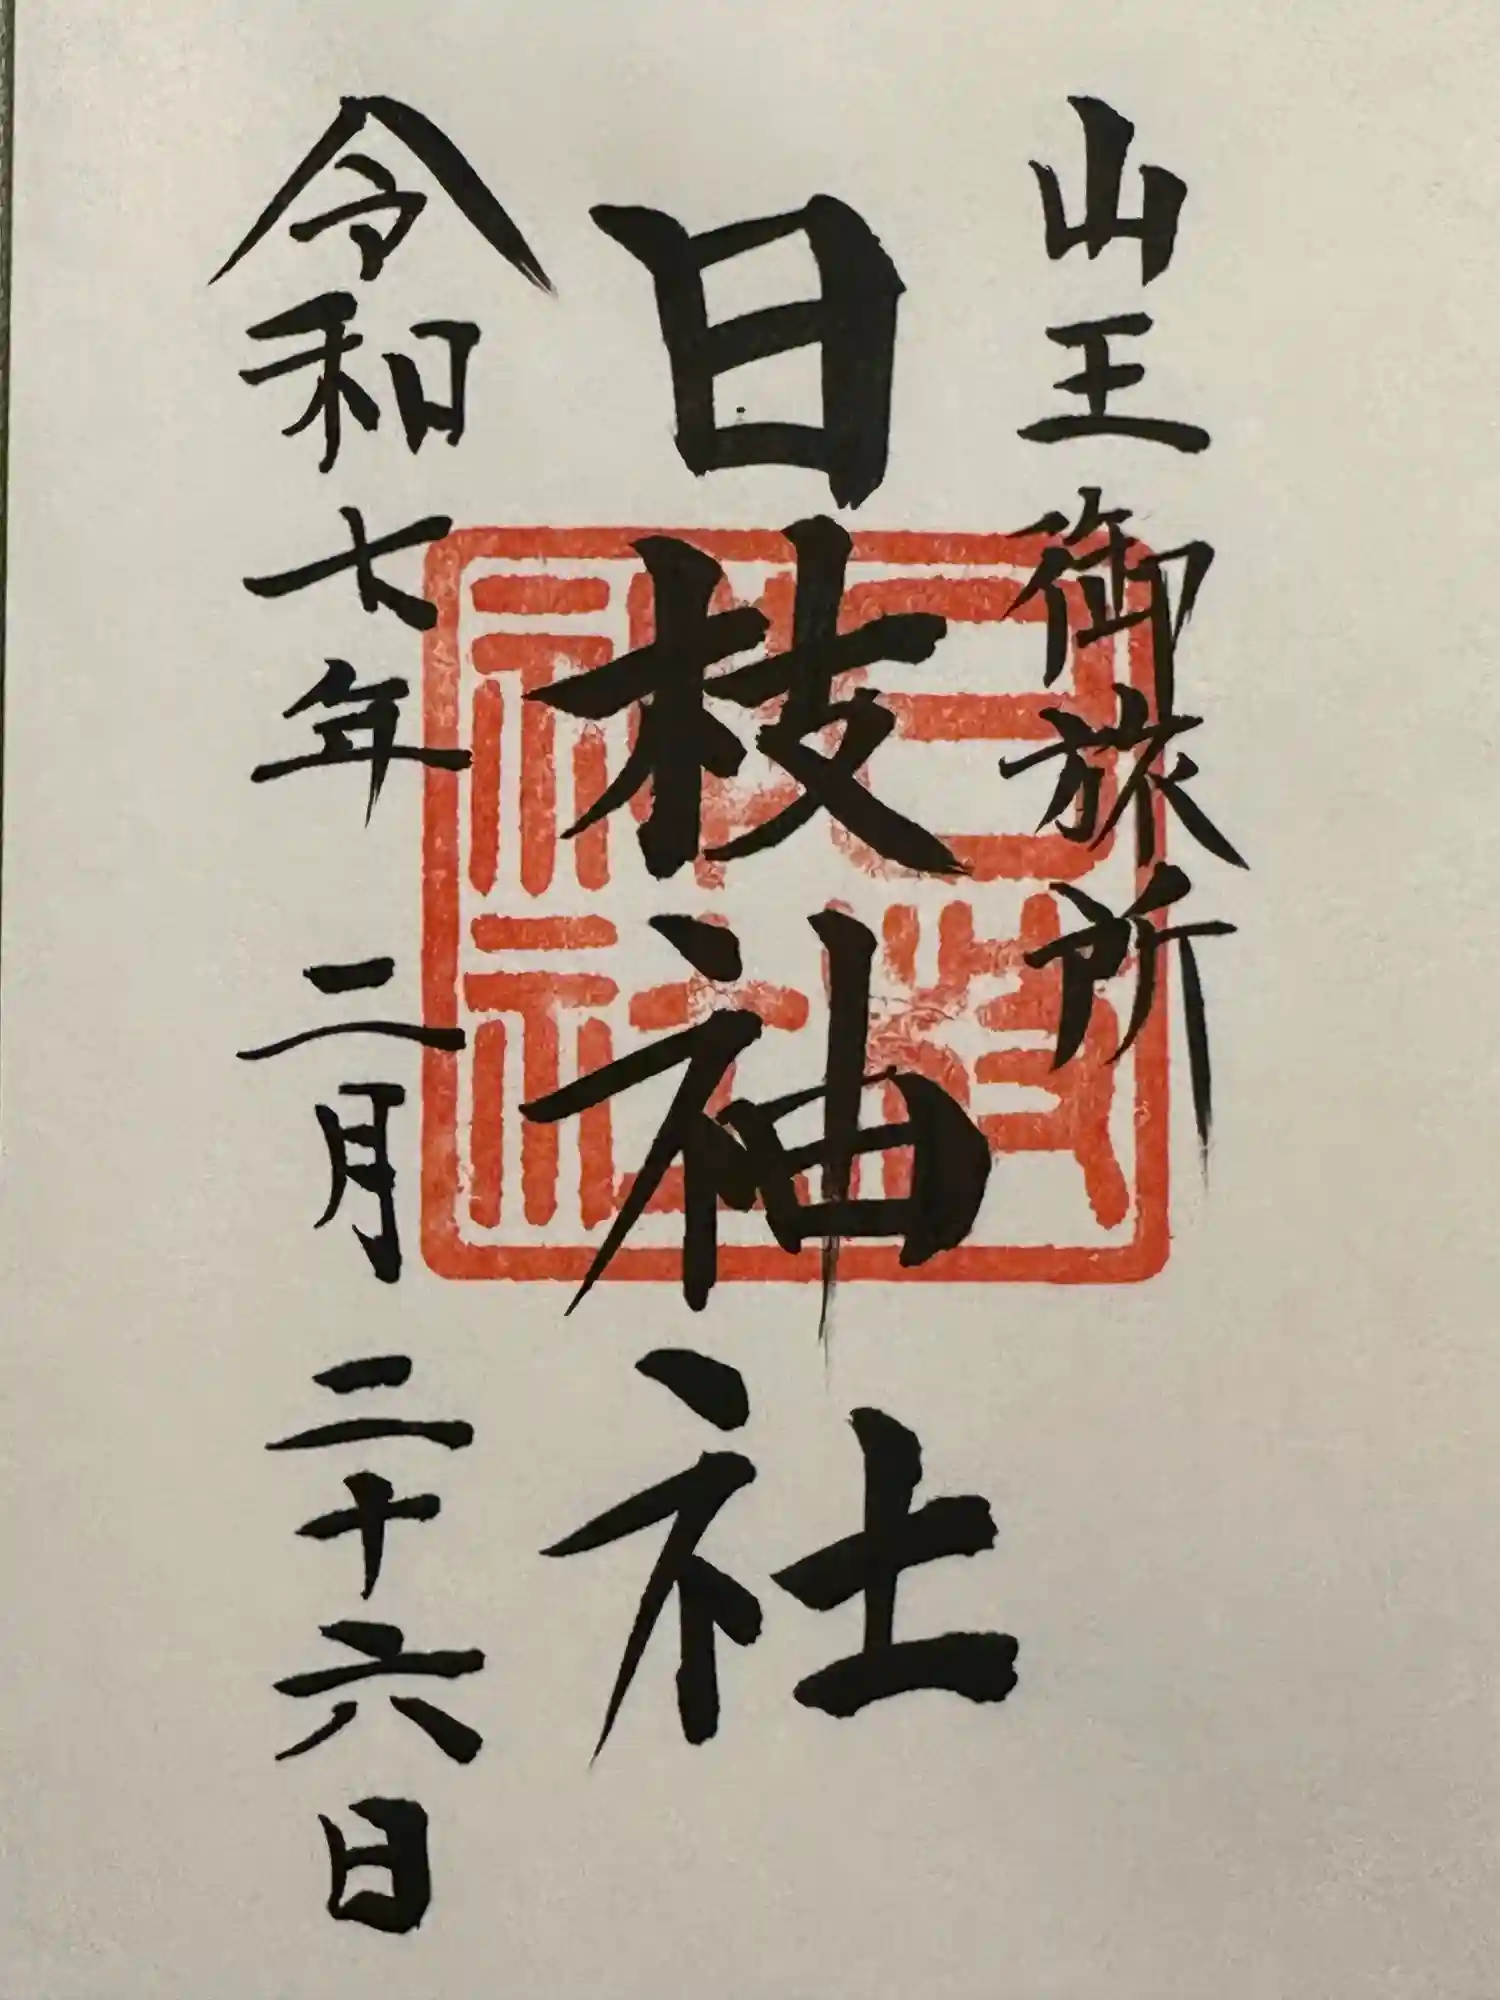 山王御旅所
日枝神社
令和七年二月二十六日
日枝
神社